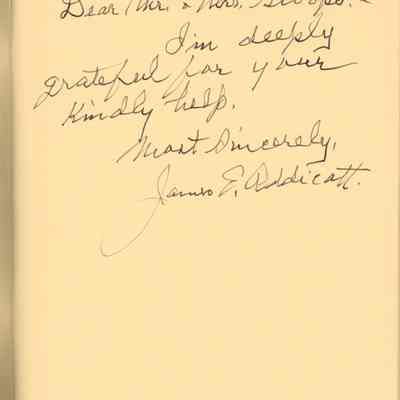 Dear Mr. & Mrs.
I'm deeply
grateful for your
kindly help.
Most Sincerely,
James E. Addicott.